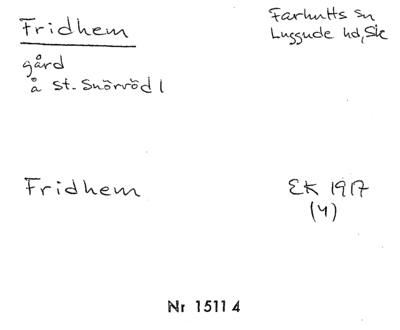 Fridhem
Farhults sn
Luggude hd, Sk
gård
å St. Snörröd 1
Fridhem
EK 1917
(4)
Nr 15114